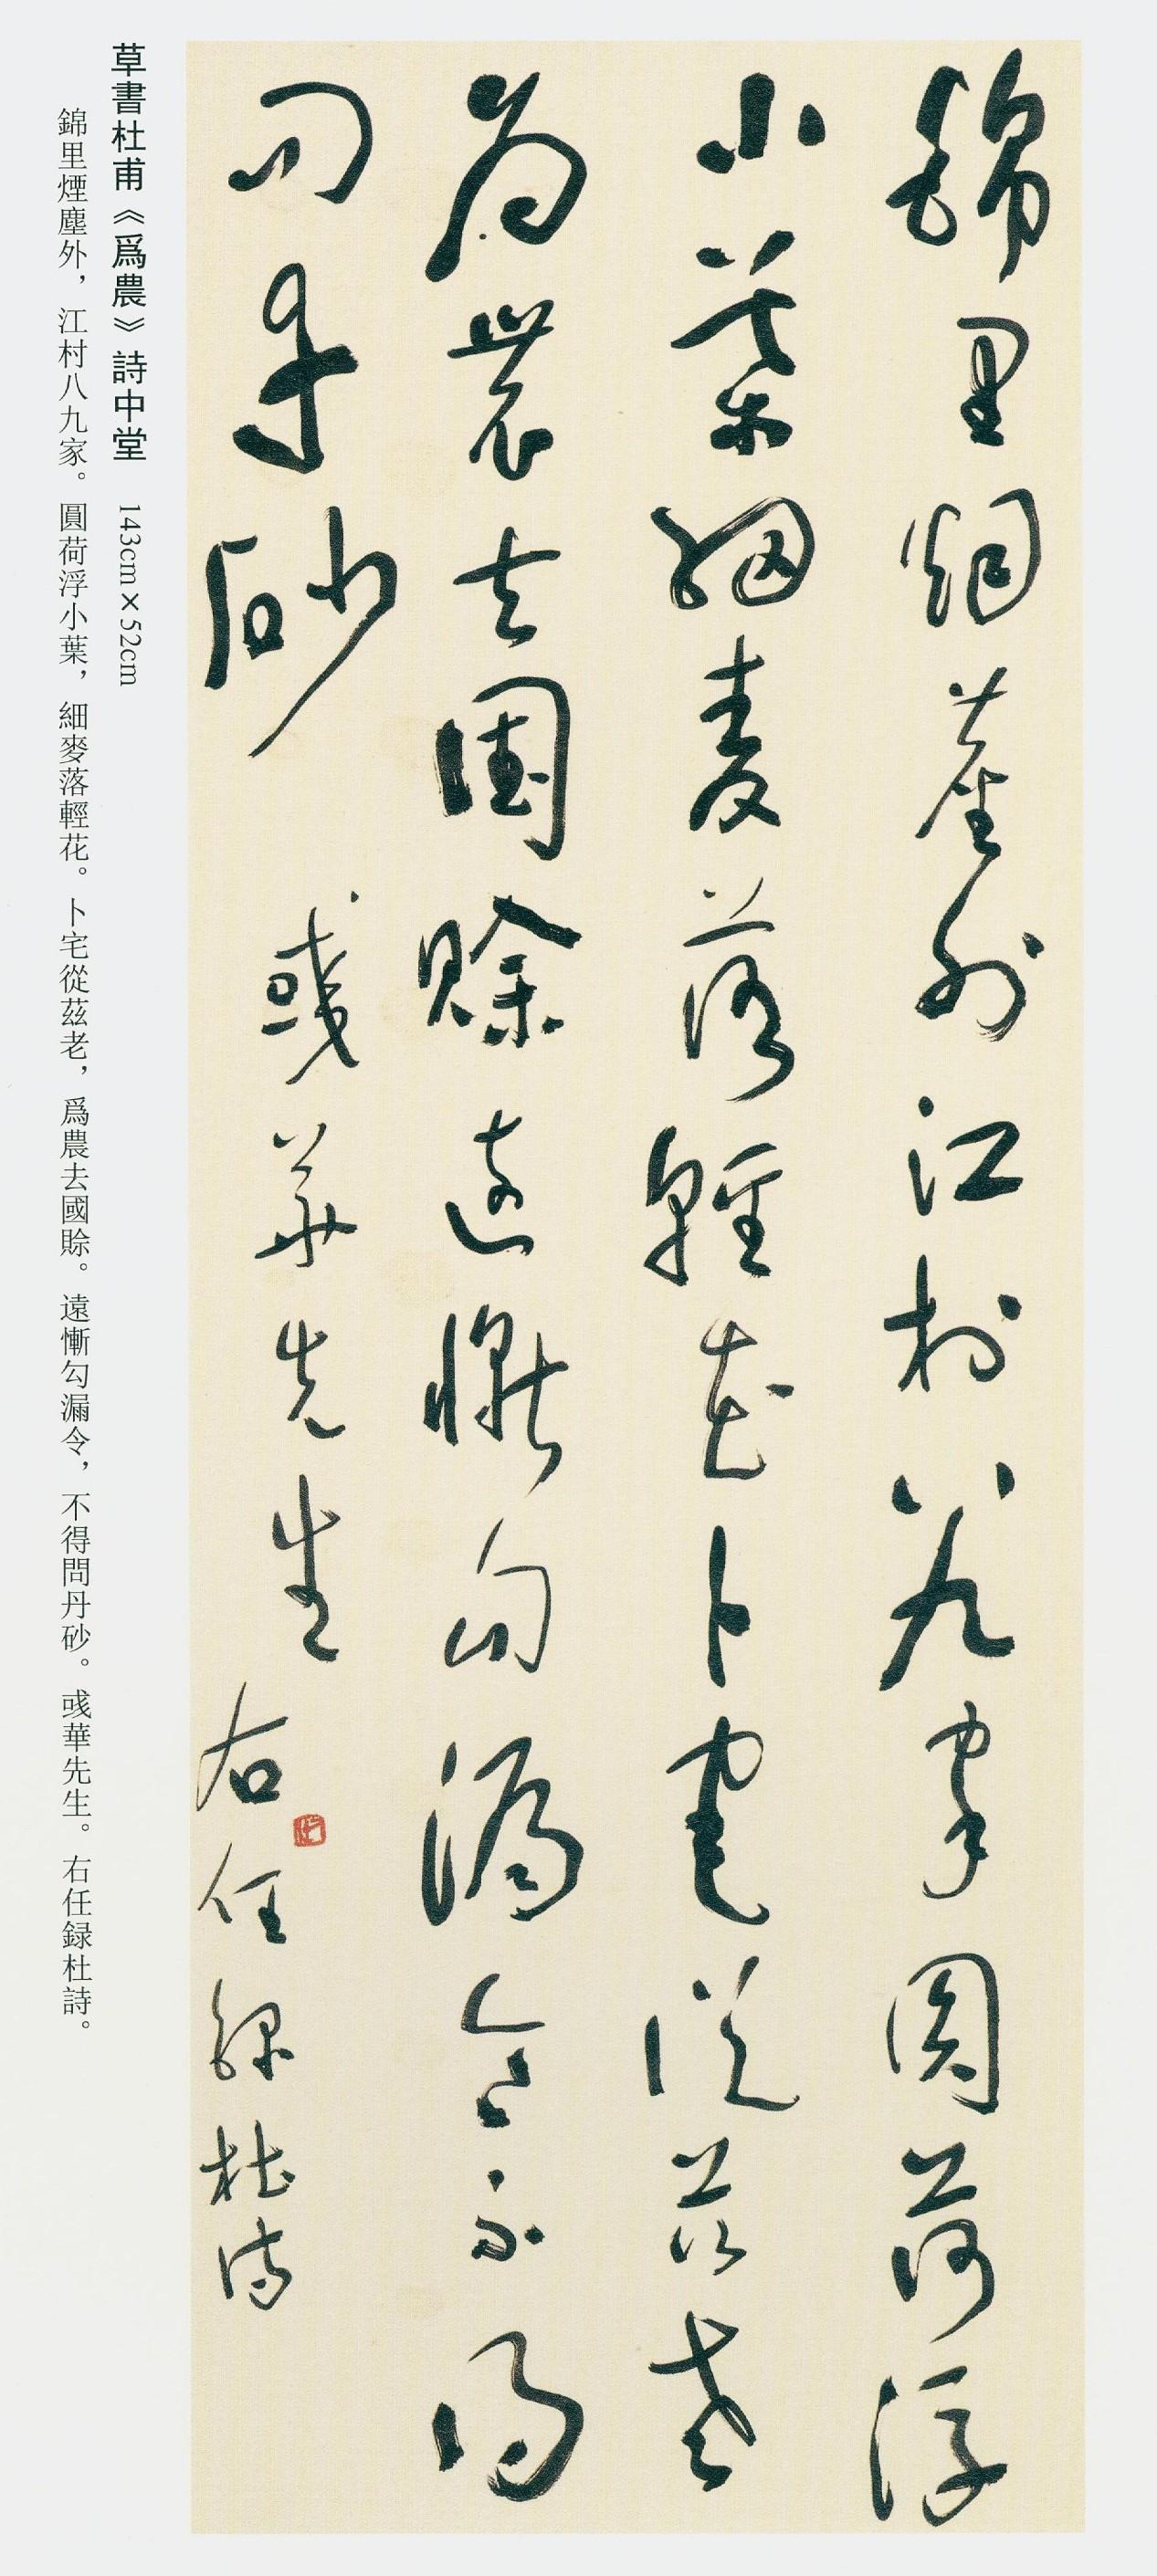 錦里烟塵外江村八九家圓荷浮
小葉細麥落輕花卜宅從茲老
為農去國賒遠慚勾漏令不得
問丹砂 彧華先生
右任録杜詩
草書杜甫《爲農》詩中堂 143cm×52cm
錦里煙塵外，江村八九家。圓荷浮小葉，細麥落輕花。卜宅從茲老，爲農去國賒。遠慚勾漏令，不得問丹砂。彧華先生。右任録杜詩。